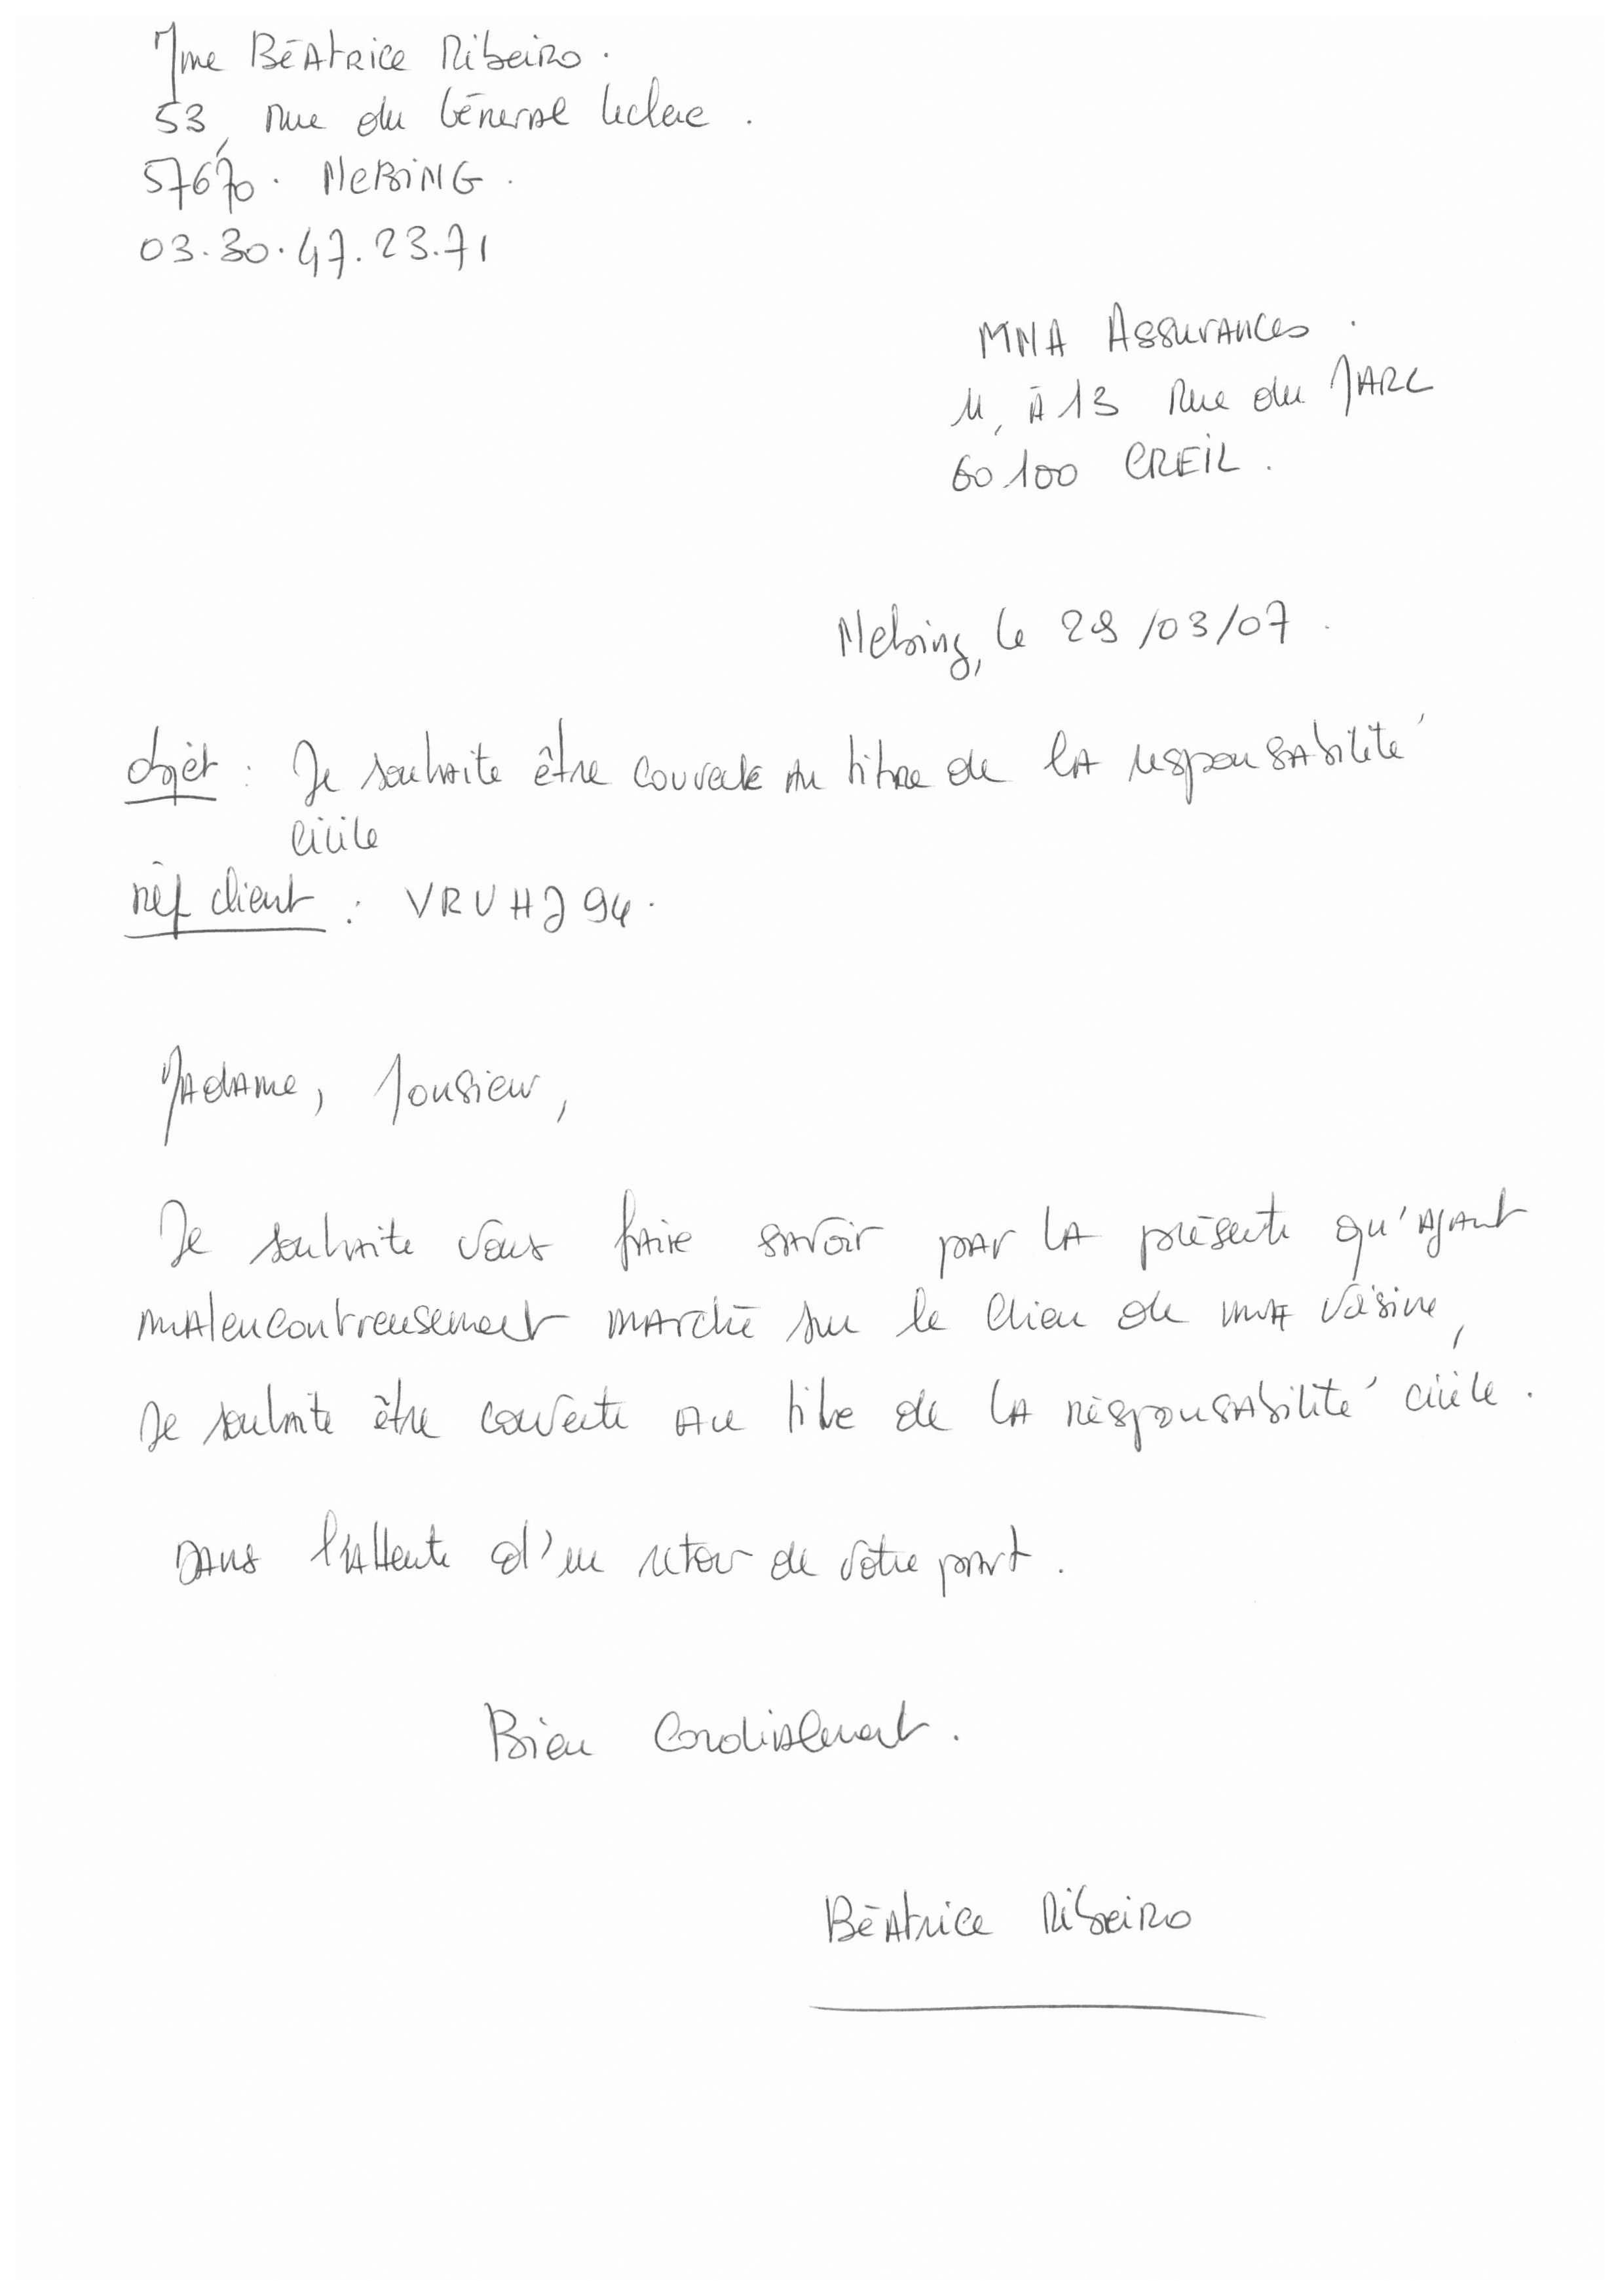 Mme Béatrice Ribeiro.
53, rue du Général Leclerc.
57670. NEBING.
03.30.47.23.71
MNA Assurances.
11, à 13 Rue du MARC
60100 CREIL.
Nebing, le 28/03/07.
objèt : Je souhaite être couverte au titre de la responsabilité
civile
réf client : VRUHJ94.
Madame, Monsieur,
Je souhaite vous faire savoir par la présente qu'ayant
malencontreusement marché sur le chien de ma voisine,
Je souhaite être couverte au titre de la résponsabilité civile.
Dans l'attente d'un retour de votre part.
Bien Cordialement.
Béatrice Ribeiro